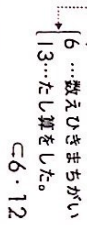 6 …数えひきまちがい
13…たし算をした。
⊂6・12